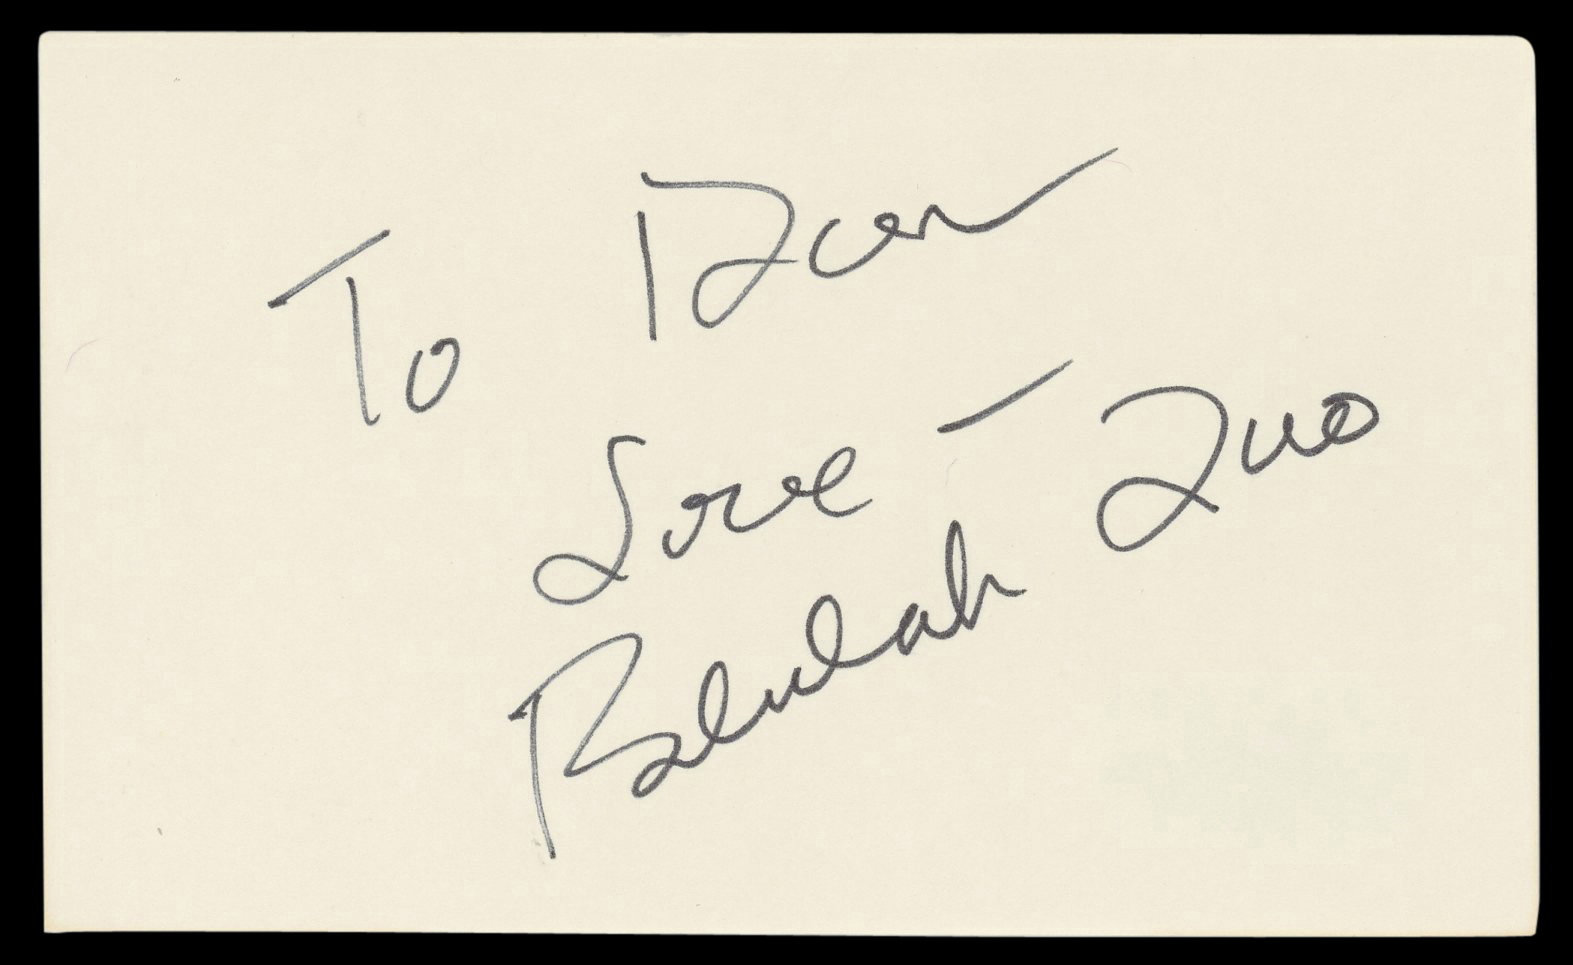 To Dan
Love –
Beulah Quo